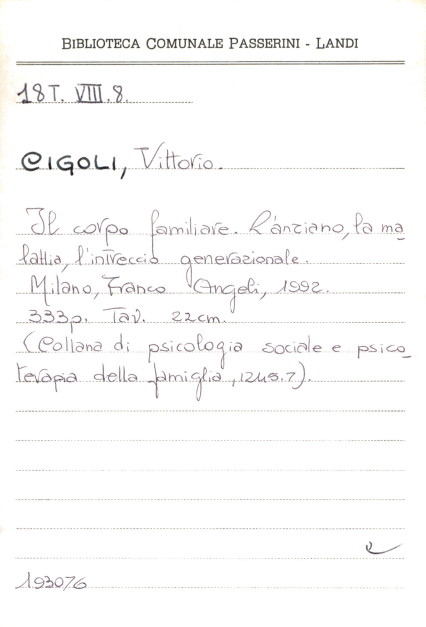 BIBLIOTECA COMUNALE PASSERINI - LANDI
18T. VIII.8.
CIGOLI, Vittorio.
Il corpo familiare. L'anziano, la ma
lattia, l'intreccio generazionale.
Milano, Franco Angeli, 1992.
333p. Tav. 22cm.
(Collana di psicologia sociale e psico_
terapia della famiglia, 1245.7).
193076